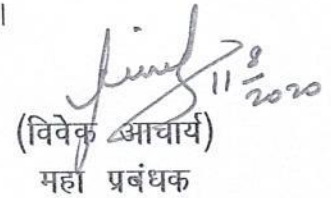 11/8/2020
(विवेक आचार्य)
महा प्रबंधक